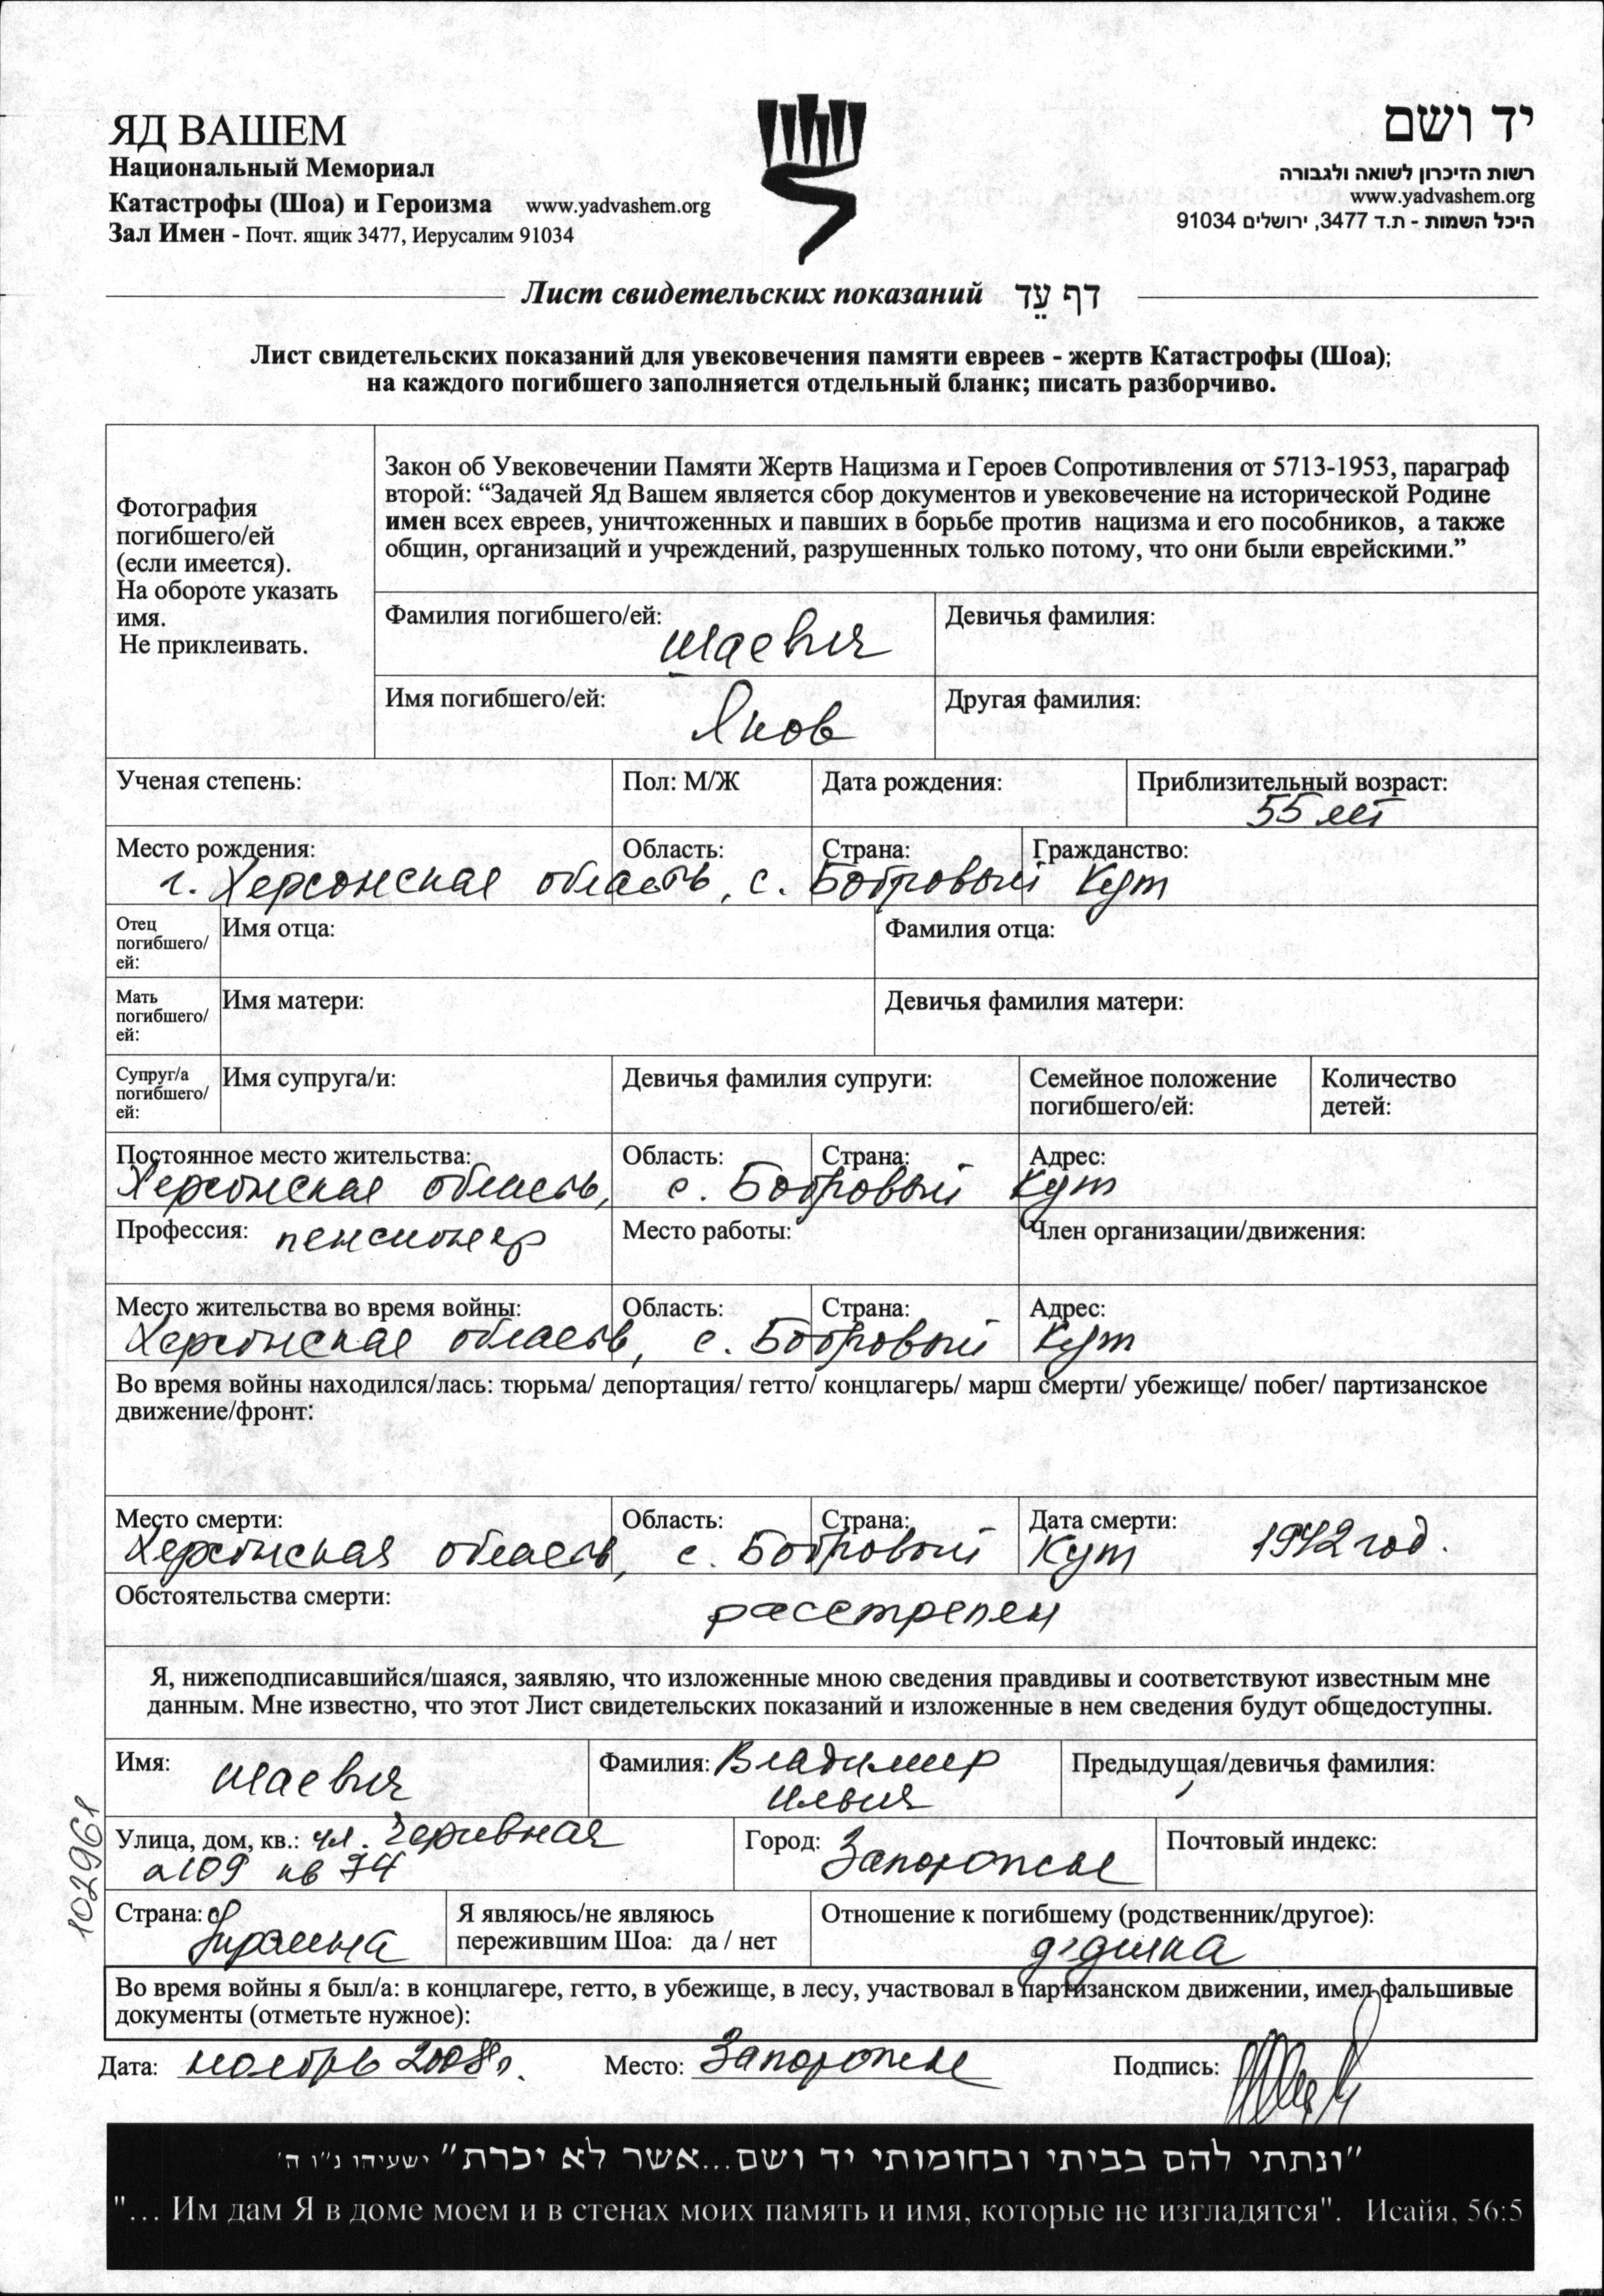 ЯД ВАШЕМ
Национальный Мемориал
Катастрофы (Шоа) и Героизма www.yadvashem.org
Зал Имен - Почт. ящик 3477, Иерусалим 91034
יד ושם
רשות הזיכרון לשואה ולגבורה
www.yadvashem.org
היכל השמות - ת.ד 3477, ירושלים 91034
Лист свидетельских показаний דף עֵד
Лист свидетельских показаний для увековечения памяти евреев - жертв Катастрофы (Шоа);
на каждого погибшего заполняется отдельный бланк; писать разборчиво.
Фотография
погибшего/ей
(если имеется).
На обороте указать
имя.
Не приклеивать.
Закон об Увековечении Памяти Жертв Нацизма и Героев Сопротивления от 5713-1953, параграф
второй: “Задачей Яд Вашем является сбор документов и увековечение на исторической Родине
имен всех евреев, уничтоженных и павших в борьбе против нацизма и его пособников, а также
общин, организаций и учреждений, разрушенных только потому, что они были еврейскими.”
Фамилия погибшего/ей: Шаевич Девичья фамилия:
Имя погибшего/ей: Яков Другая фамилия:
Ученая степень: Пол: М/Ж Дата рождения: Приблизительный возраст:
55 лет
Место рождения: Область: Страна: Гражданство:
г. Херсонская область, с. Бобровый Кут
Отец
погибшего/
ей:
Имя отца: Фамилия отца:
Мать
погибшего/
ей:
Имя матери: Девичья фамилия матери:
Супруг/а
погибшего/
ей:
Имя супруга/и: Девичья фамилия супруги: Семейное положение
погибшего/ей:
Количество
детей:
Постоянное место жительства: Область: Страна: Адрес:
Херсонская область, с. Бобровый Кут
Профессия: пенсионер Место работы: Член организации/движения:
Место жительства во время войны: Область: Страна: Адрес:
Херсонская область, с. Бобровый Кут
Во время войны находился/лась: тюрьма/ депортация/ гетто/ концлагерь/ марш смерти/ убежище/ побег/ партизанское
движение/фронт:
Место смерти: Область: Страна: Дата смерти:
Херсонская область, с. Бобровый Кут 1942 год.
Обстоятельства смерти: расстрелян
Я, нижеподписавшийся/шаяся, заявляю, что изложенные мною сведения правдивы и соответствуют известным мне
данным. Мне известно, что этот Лист свидетельских показаний и изложенные в нем сведения будут общедоступны.
Имя: Шаевич Фамилия: Владимир Предыдущая/девичья фамилия:
Ильич
Улица, дом, кв.: ул. Город: Запорожье Почтовый индекс:
109 кв 74
Страна: Украина
Я являюсь/не являюсь
пережившим Шоа: да / нет
Отношение к погибшему (родственник/другое):
дедушка
Во время войны я был/а: в концлагере, гетто, в убежище, в лесу, участвовал в партизанском движении, имел фальшивые
документы (отметьте нужное):
Дата: ноябрь 2008г. Место: Запорожье Подпись:
102961
"ונתתי להם בביתי ובחומותי יד ושם...אשר לא יכרת" ישעיהו נ"ו ה'
"... Им дам Я в доме моем и в стенах моих память и имя, которые не изгладятся". Исайя, 56:5